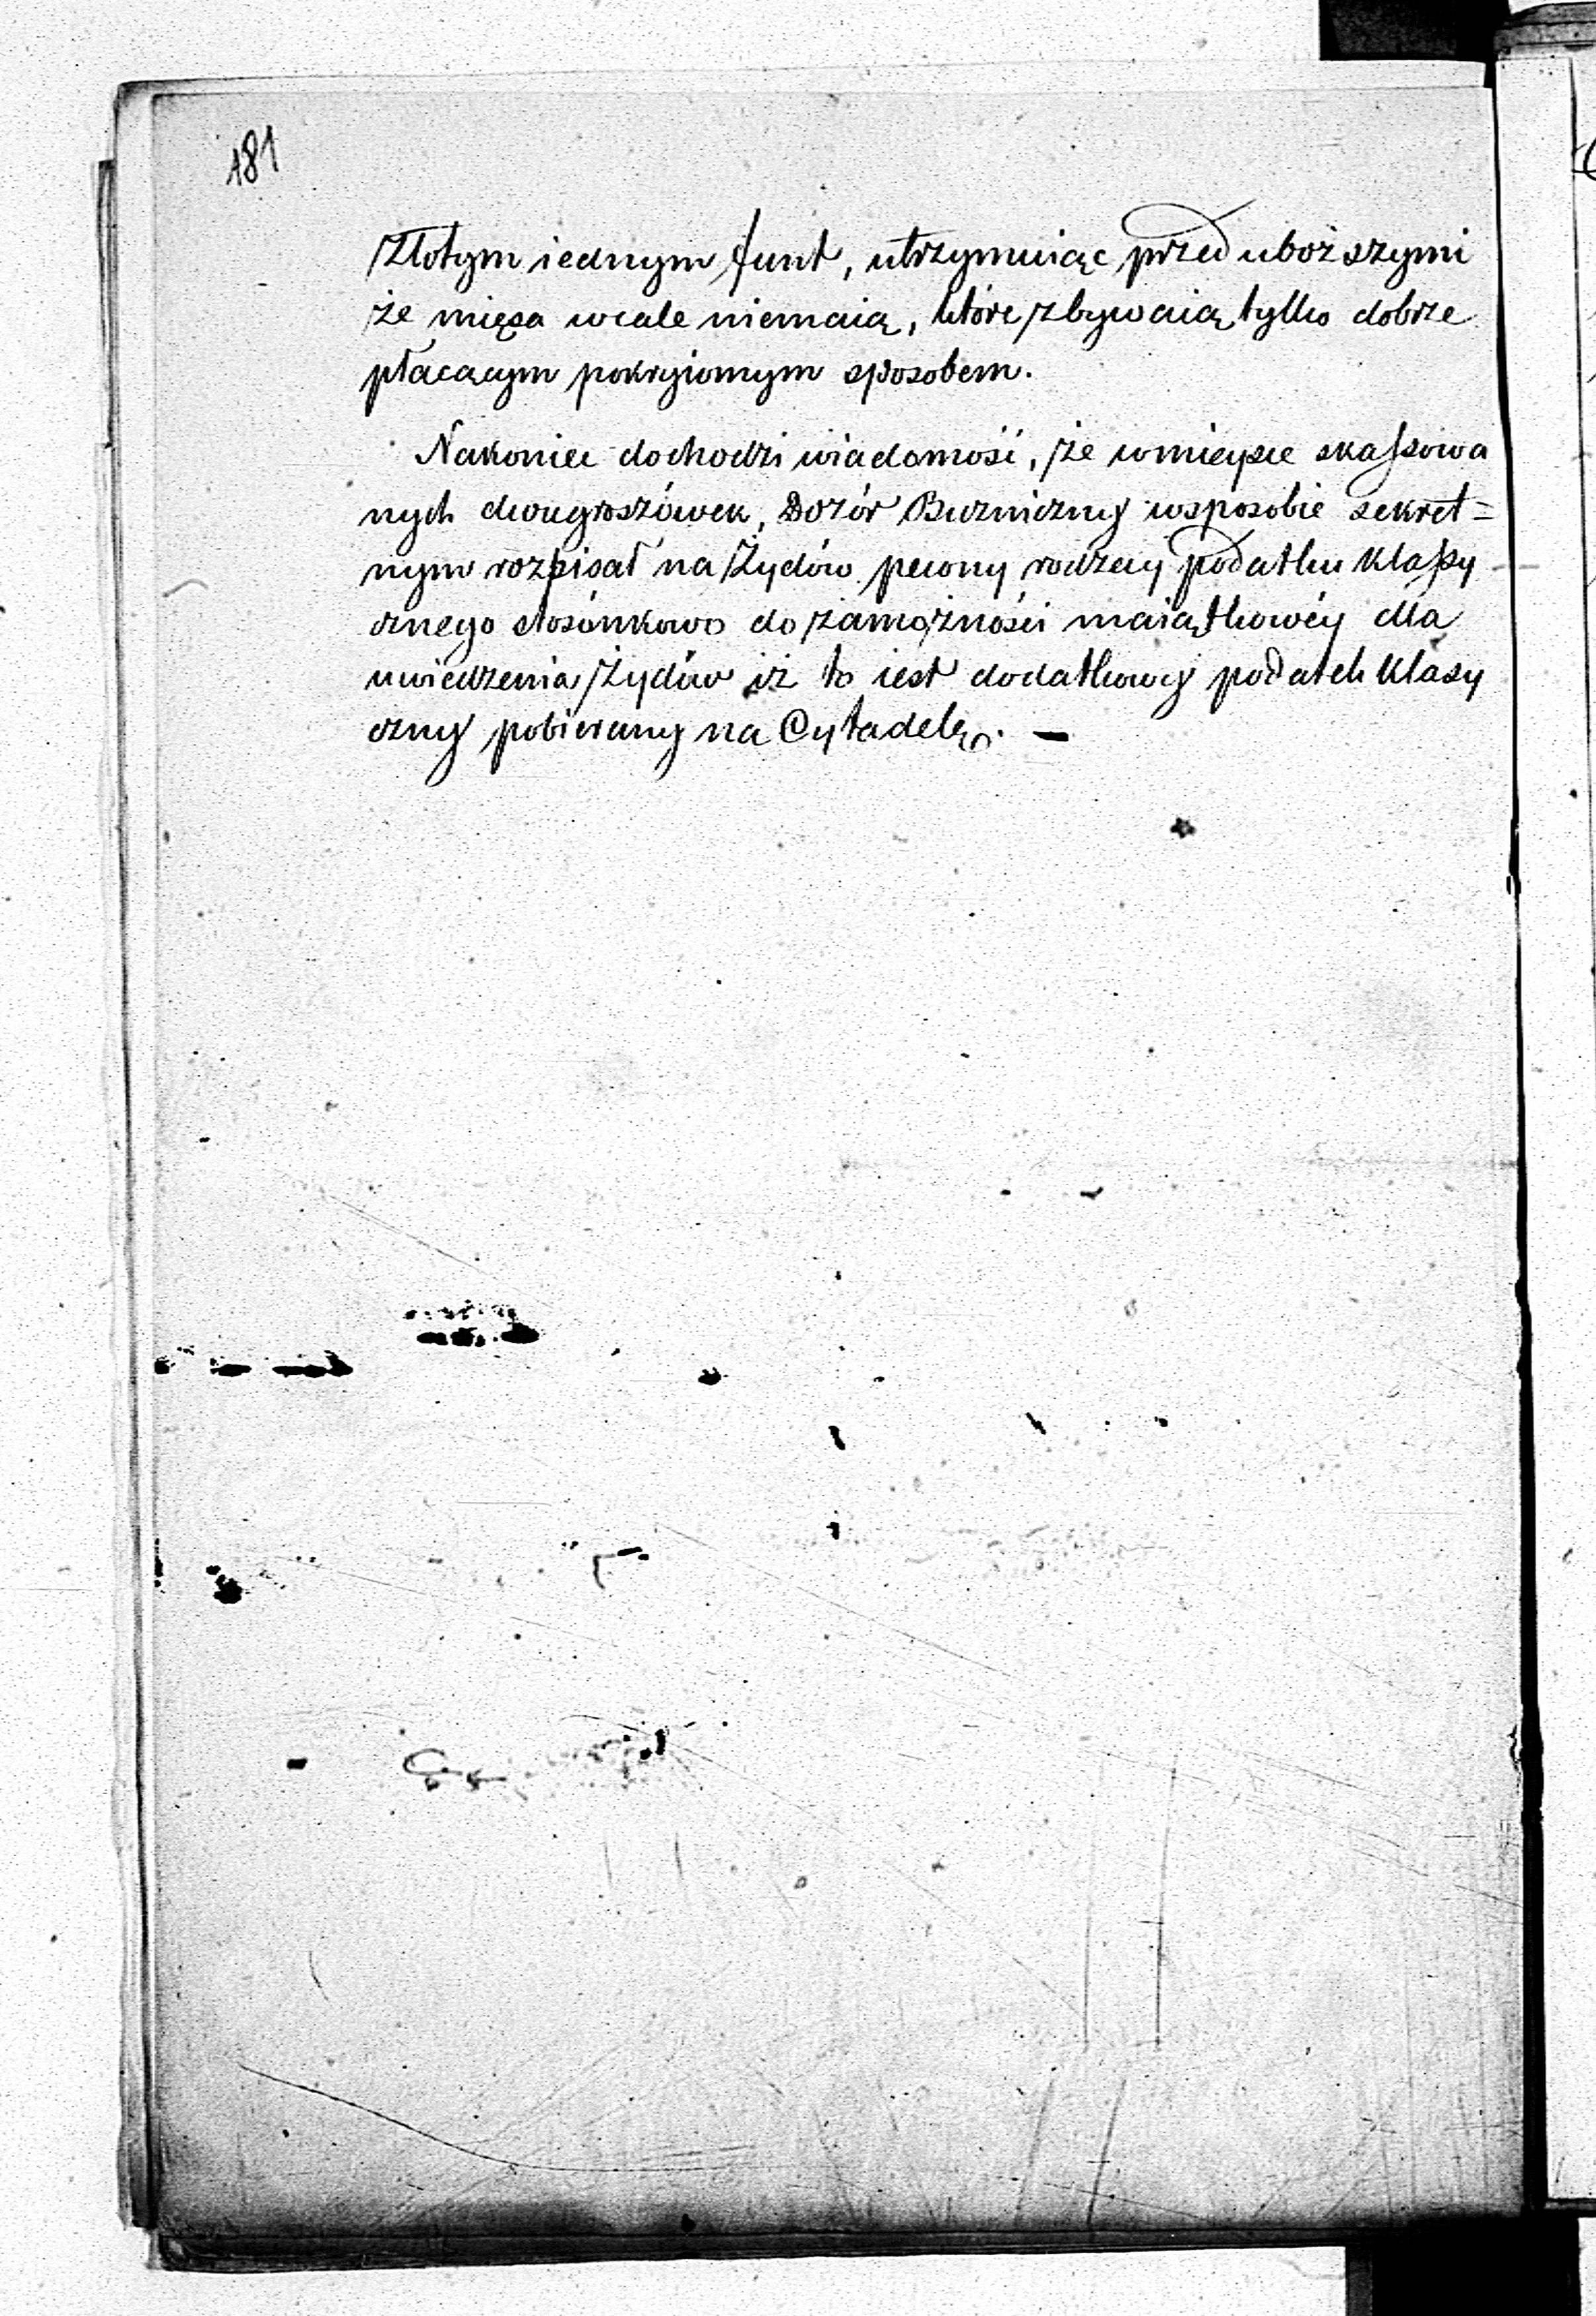 181
Złotym iednym funt, utrzymuiąc przed uboższymi
że mięsa wcale niemaią, które zbywaią tylko dobrze
płacącym pokryiomym sposobem.
Nakoniec dochodzi wiadomość, że wmieysce skassowa
nych dwugroszówek, Dozór Buzniczny wsposobie sekret=
nym rozpisał na Żydów pewny rodzay podatku klassy
cznego stosónkowo do zamożności maiątkowéy dla
uwiedzenia Żydów iż to iest dodatkowy podatek klasy
czny pobierany na Cytadelę. —